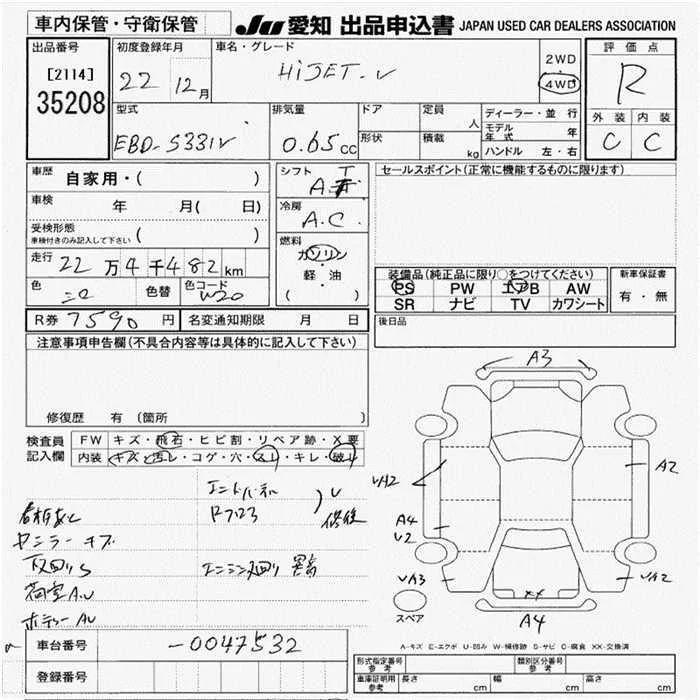 車内保管・守衛保管
JU 愛知 出品申込書 JAPAN USED CAR DEALERS ASSOCIATION
出品番号
[2114]
35208
初度登録年月
22 12月
車名・グレード
HiJET-V
2WD
4WD
評価点
R
外装 内装
C C
型式
EBD-S331V
排気量
0.65cc
ドア
形状
定員
人
積載
kg
ディーラー・並行
モデル年式 年
ハンドル 左・右
車歴
自家用・( )
車検 年 月( 日)
受検形態
車検付きのみ記入して下さい ( )
走行 22万4千482km
色 シロ 色替 色コード W20
R券 7590円 名変通知期限 月 日
シフト
AT
冷房
A.C.
燃料
ガソリン
・
軽・油
( )
セールスポイント(正常に機能するものに限ります)
装備品(純正品に限り○をつけてください)
PS PW エアB AW
SR ナビ TV カワシート
新車保証書
有・無
後日品
注意事項申告欄(不具合内容等は具体的に記入して下さい)
修復歴 有 (箇所
検査員
記入欄
FW キズ・飛石・ヒビ割・リペア跡・X要
内装 キズ・汚レ・コゲ・穴・スレ・キレ・破レ
エンドパネル
Rフロア
U
修復
看板あと
センター キズ
下回りS
エンジン廻り 異音
荷室A.U
ボディーAU
A3
UA2
A2
A4
U2
UA3
UA2
XX
A4
スペア
A-キズ E-エクボ U-凹み W-補修跡 S-サビ C-腐食 XX-交換済
車台番号 -0047532
登録番号
形式指定番号 参考
類別区分番号 参考
車庫証明用 参考
長さ cm 幅 cm 高さ cm